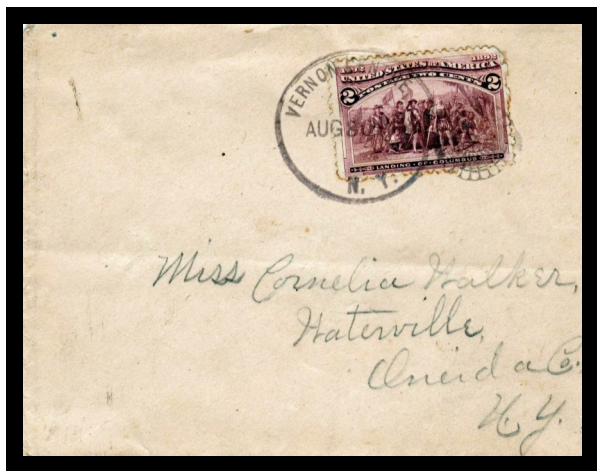 VERNON
AUG 30
N. Y.
1492 1892
UNITED STATES OF AMERICA
POSTAGE TWO CENTS
2 2
LANDING OF COLUMBUS
Miss Cornelia Walker,
Waterville,
Oneida Co.
N. Y.